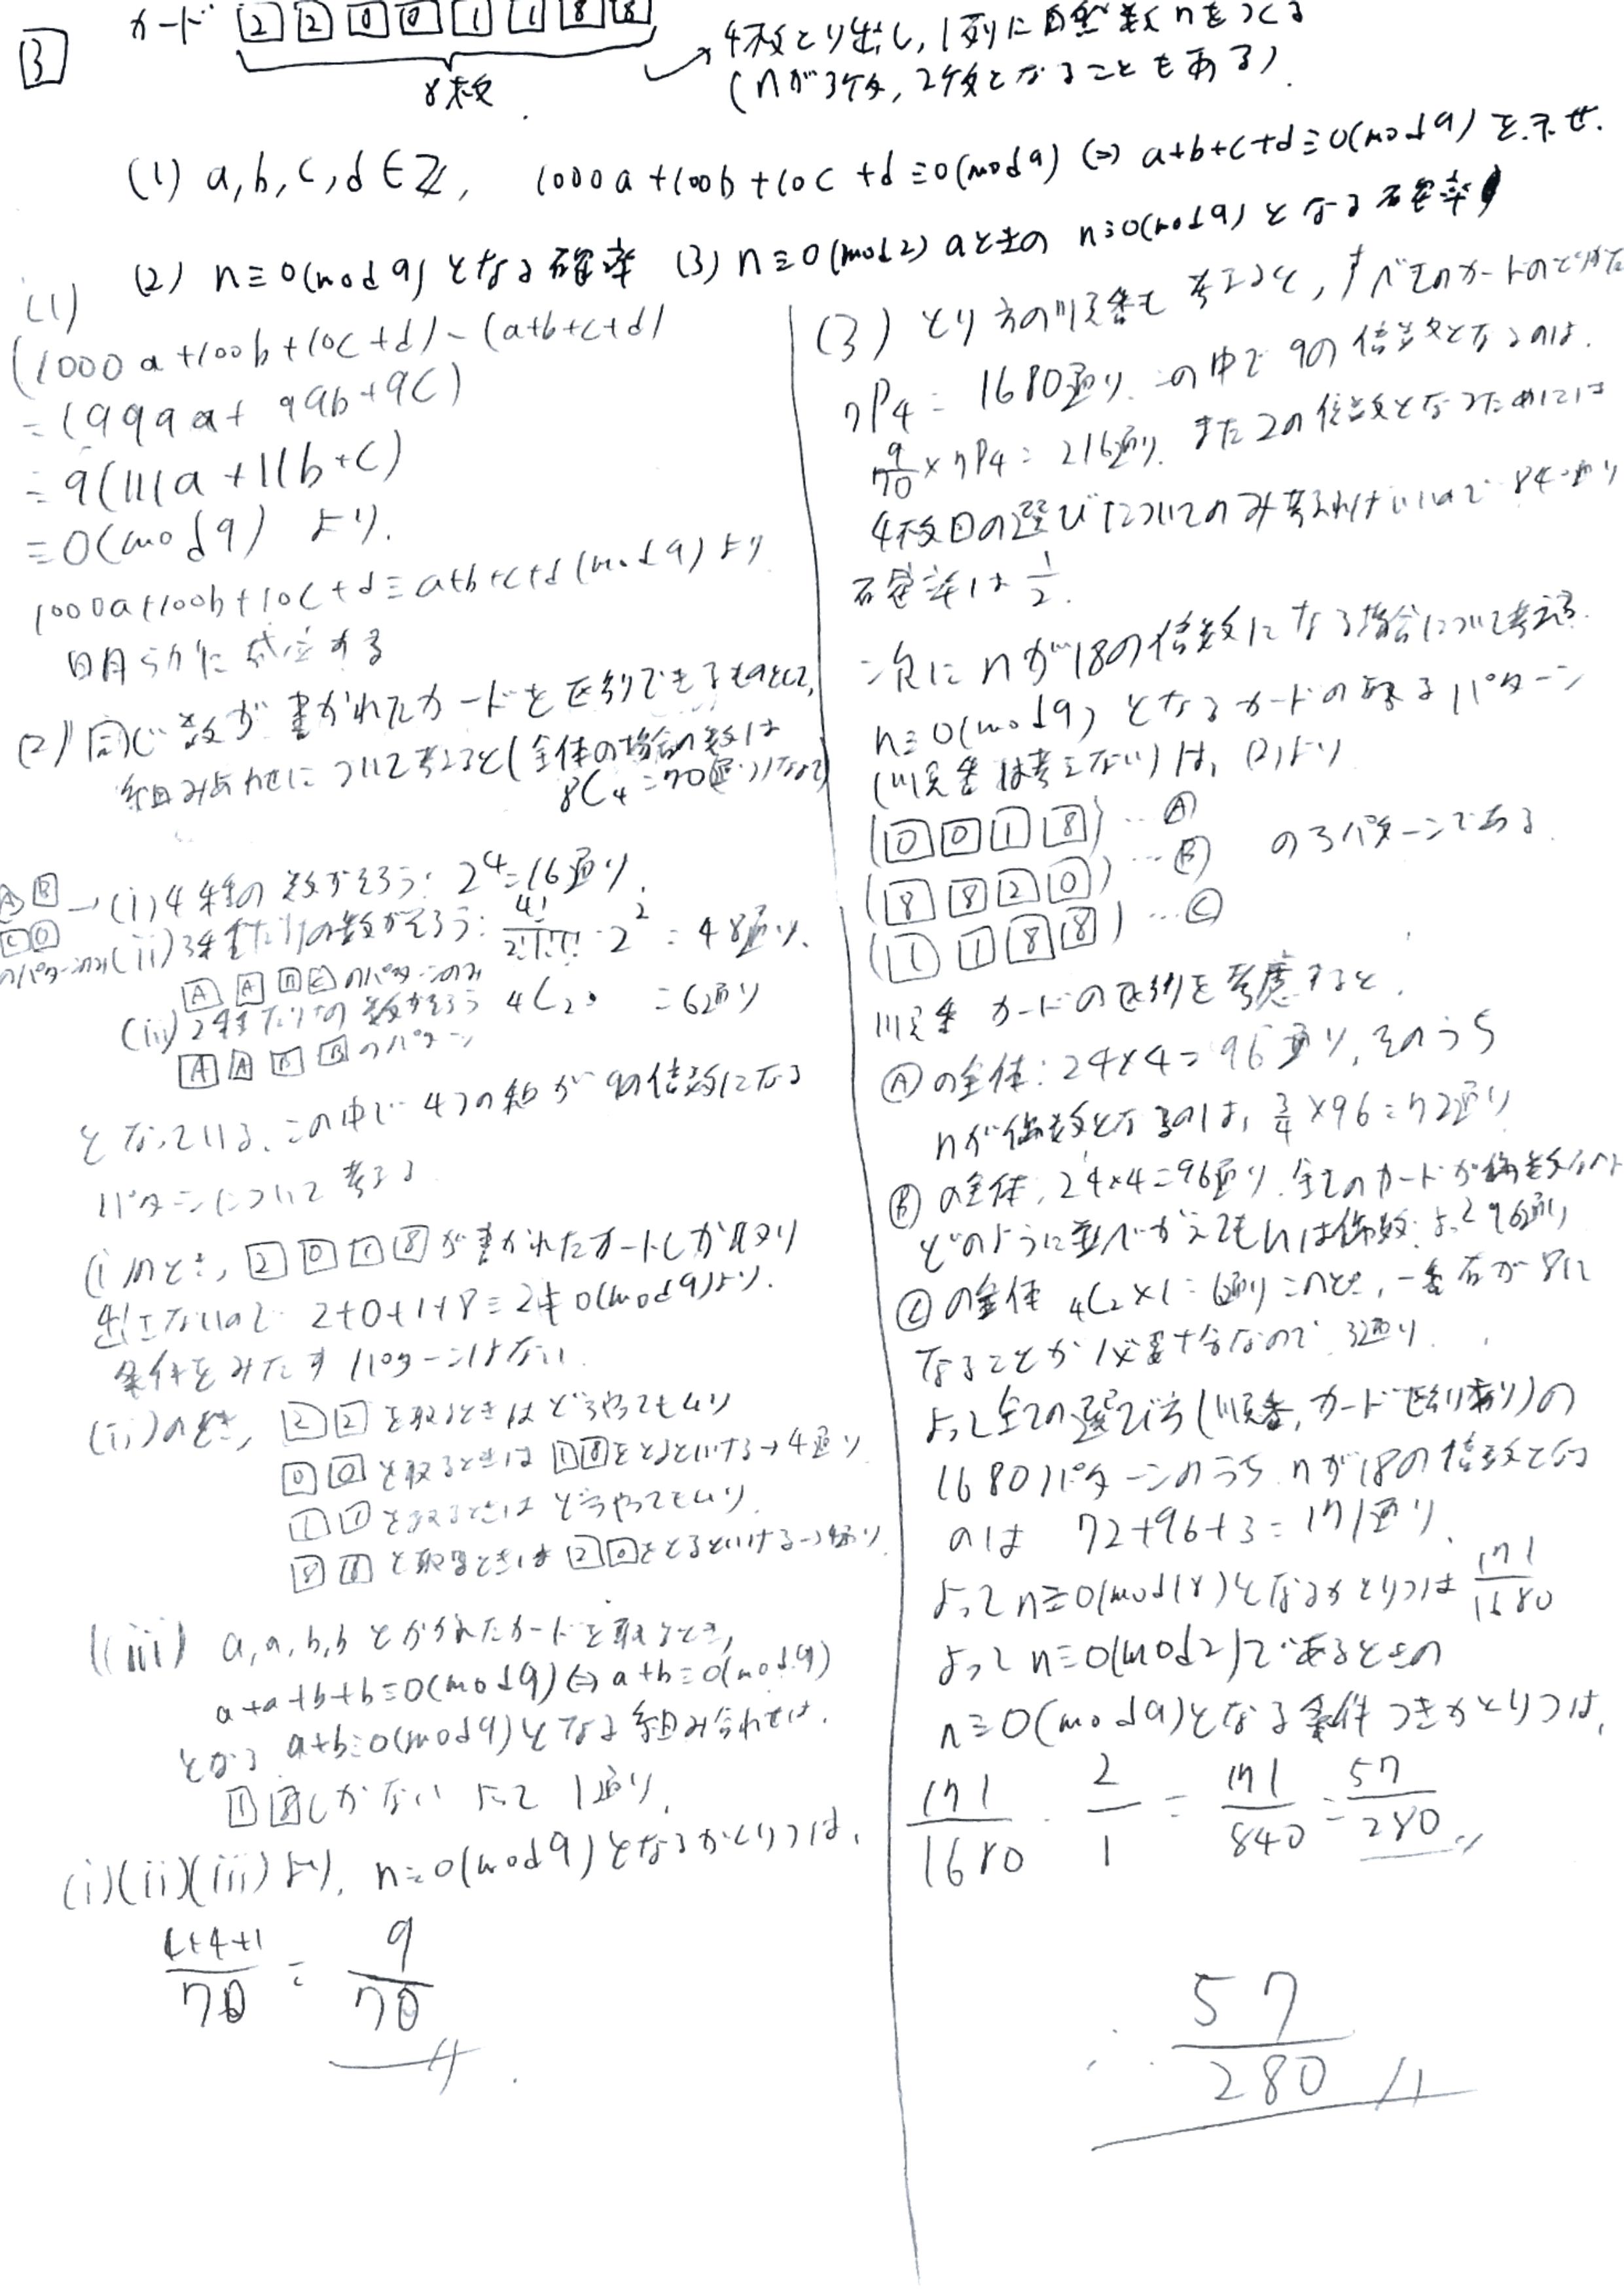 3
カード 2 2 0 0 1 1 8 8
8枚
4枚とり出し, 1列に自然数nをつくる
(nが3ケタ, 2ケタとなることもある).
(1) a, b, c, d ∈ Z, 1000a+100b+10c+d≡0(mod9) ⇔ a+b+c+d≡0(mod9) を示せ.
(2) n≡0(mod9)となる確率 (3) n≡0(mod2)のときの n≡0(mod9)となる確率
(1)
(1000a+100b+10c+d)-(a+b+c+d)
=(999a+99b+9c)
=9(111a+11b+c)
≡0(mod9) より.
1000a+100b+10c+d≡a+b+c+d(mod9)より
明らかに成立する
(2) 同じ数が書かれたカードを区別できるものとして,
組み合わせについて考えると(全体の場合の数は
8C4=70通り)なので
A B C D のパターンのみ
→(i) 4種の数がそろう: 2^4=16通り.
(ii) 3種だけの数がそろう: 4!/2!1!1! ・2^2 = 48通り.
A A B C のパターンのみ
(iii) 2種だけの数がそろう 4C2 =6通り
A A B B のパターン
となっている. この中で4つの和が9の倍数になる
パターンについて考える
(i)のとき, 2 0 1 8 が書かれたカードしか取り
出せないので 2+0+1+8≡2≢0(mod9)より.
条件をみたすパターンはない
(ii)のとき, 2 2 を取るときはどうやってもムリ
0 0 を取るときは 1 8 をとるといける→4通り
1 1 を取るときはどうやってもムリ.
8 8 を取るときは 2 0 をとるといける→4通り.
(iii) a, a, b, b とかかれたカードを取るとき,
a+a+b+b≡0(mod9)⇔a+b≡0(mod9)
となる a+b≡0(mod9)となる組み合わせは.
1 8 しかない よって 1通り.
(i)(ii)(iii)より. n≡0(mod9)となるかくりつは,
4+4+1/70 = 9/70
(3) とり方の順番も考えると, すべてのカードの
7P4=1680通り. この中で9の倍数となるのは.
9/70×7P4=216通り. また2の倍数となるためには
4枚目の選びについてのみ考えればいいので 840通り
確率は 1/2.
次にnが18の倍数になる場合について考える.
n≡0(mod9)となるカードの取るパターン
(順番は考えない)は, (2)より
(0 0 1 8) … Ⓐ
(8 8 2 0) … Ⓑ の3パターンである.
(1 1 8 8) … Ⓒ
順番 カードの区別を考慮すると,
Ⓐの全体: 24×4=96通り, そのうち
nが偶数となるのは, 3/4×96=72通り
Ⓑの全体: 24×4=96通り. 全てのカードが偶数なので
どのように並べかえてもnは偶数. よって96通り
Ⓒの全体 4C2×1=6通り このとき, 一番右が8に
なることが必要十分なので 3通り.
よって全ての選び方(順番, カード区別あり)の
1680パターンのうち nが18の倍数となる
のは 72+96+3=171通り.
よってn≡0(mod18)となるかくりつは 171/1680
よってn≡0(mod2)であるときの
n≡0(mod9)となる条件つきかくりつは,
171/1680 ・ 2/1 = 171/840 = 57/280
∴ 57/280